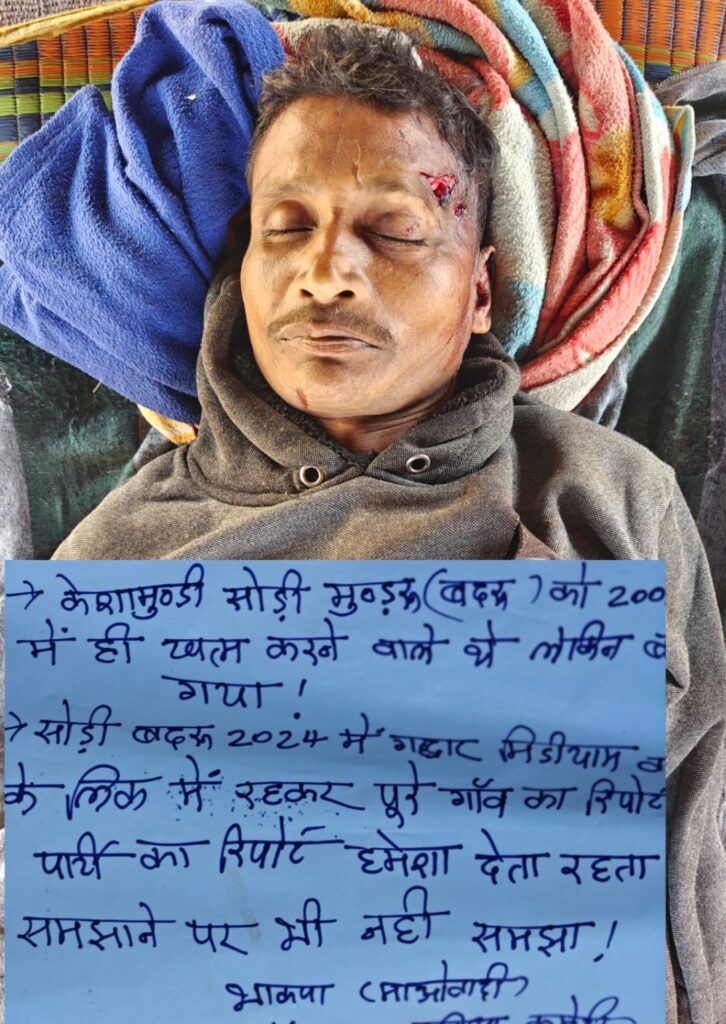 → केशामुण्डी सोड़ी मुण्ड्रू (बदरू) को 200
में ही खत्म करने वाले थे लेकिन
गया!
→ सोड़ी बदरू 2024 में गद्दार मिडीयाम
के लिंक में रहकर पूरे गाँव का रिपोर्ट
पार्टी का रिपोर्ट हमेशा देता रहता
समझाने पर भी नही समझा!
भाकपा (माओवादी)